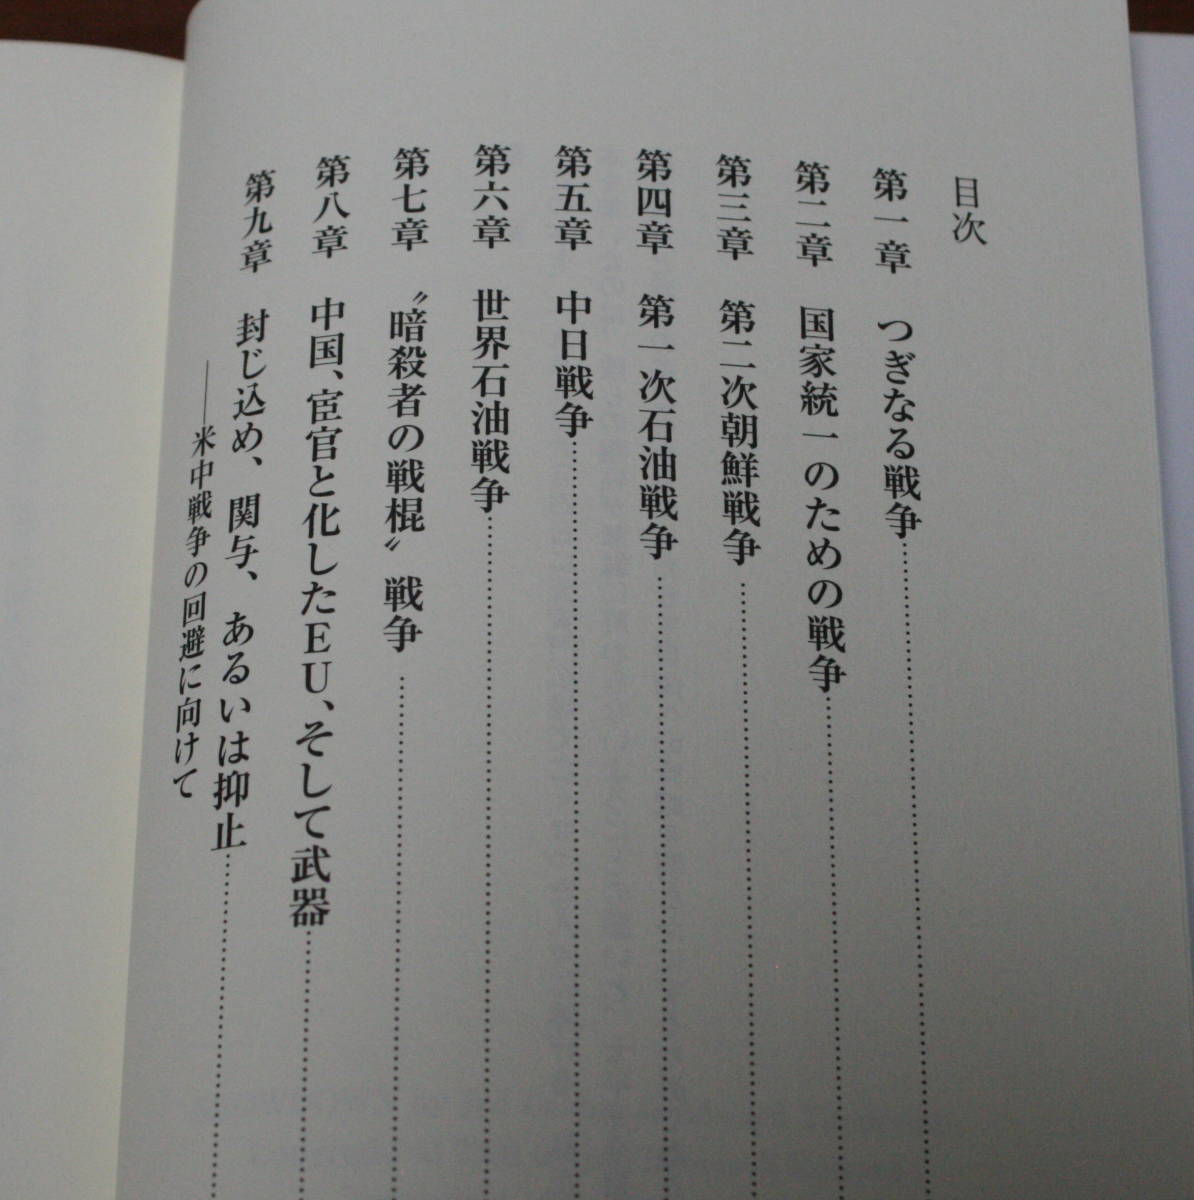 目次
第一章 つぎなる戦争
第二章 国家統一のための戦争
第三章 第二次朝鮮戦争
第四章 第一次石油戦争
第五章 中日戦争
第六章 世界石油戦争
第七章 〝暗殺者の戦棍〟戦争
第八章 中国、宦官と化したEU、そして武器
第九章 封じ込め、関与、あるいは抑止
——米中戦争の回避に向けて